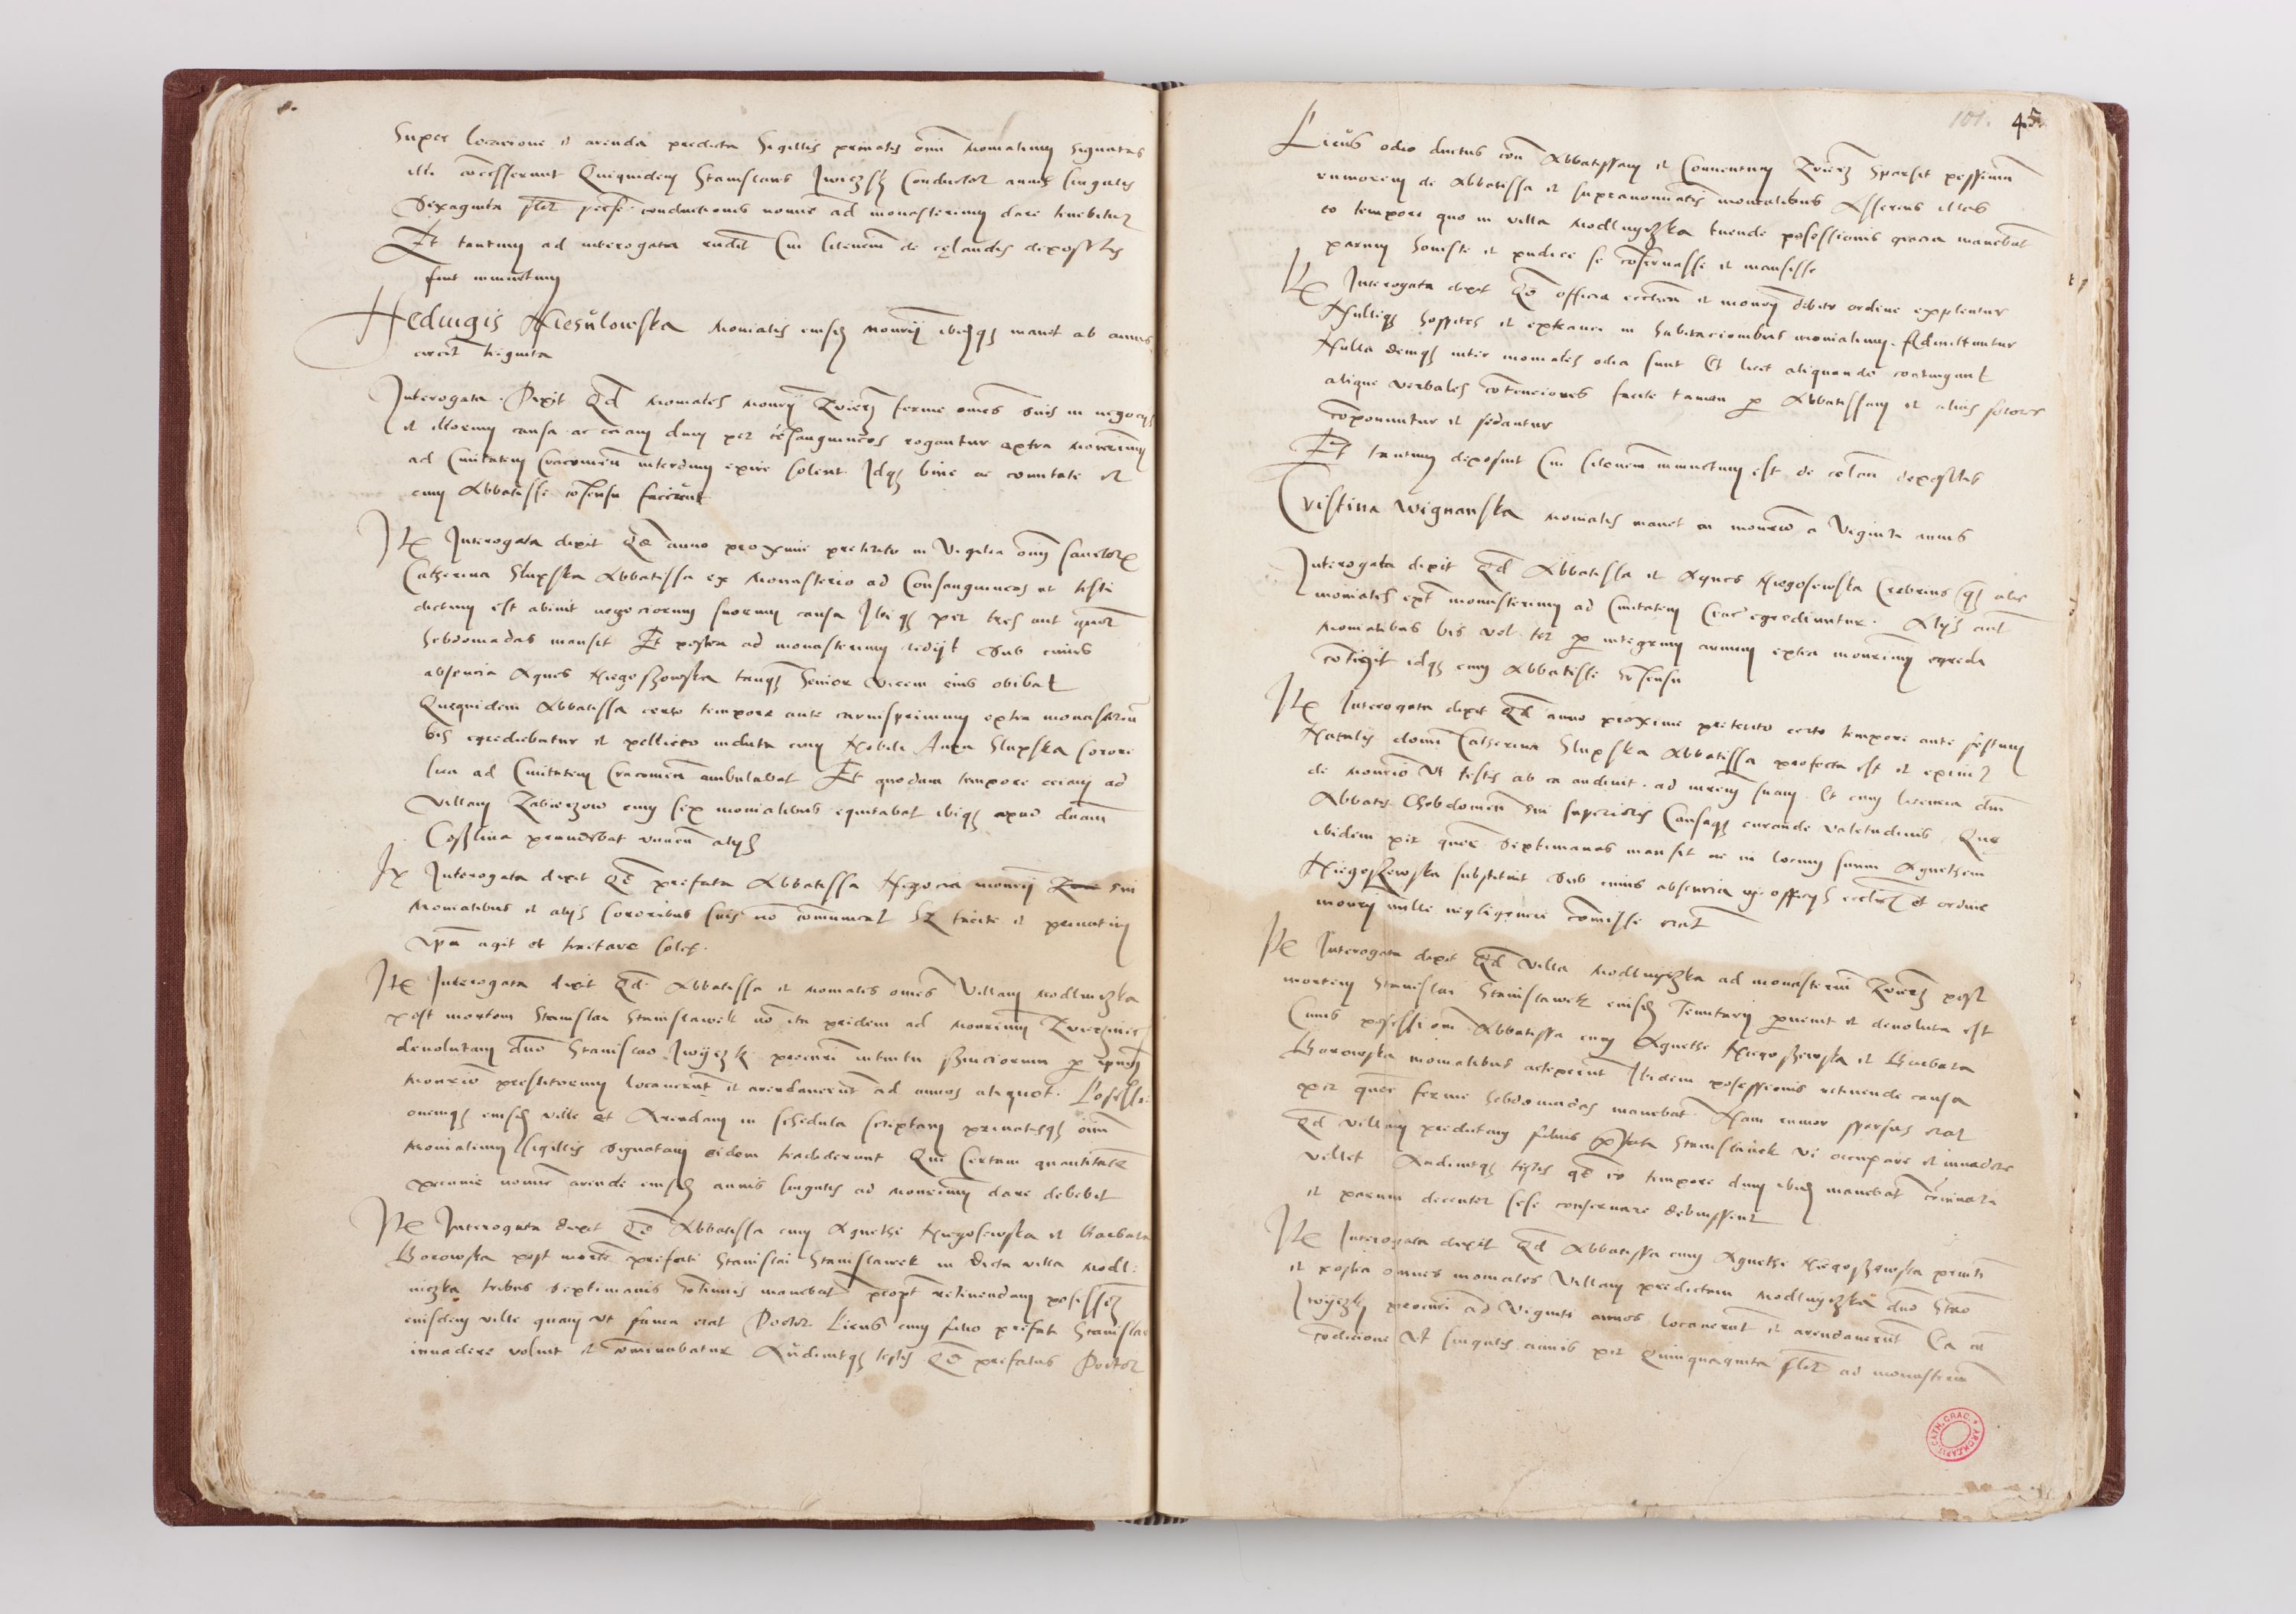 Super locacione et arenda predicta Sigillis privatis om̄i Monialium signatas
illi concesserunt Quiquidem Stanislaus Iwiczsky Conductor annis singulis
Sexaginta flor̄ conductionis nomine ad monasterium dare tenebitur
Et tantum ad interogata Cui silencium de celandis depositis
fuit iniunctum
Hedwigis monialis eiusdē monrij ibidēq3 manet ab annis
circit̄ triginta
Interogata Dixit Qd̄ moniales monrij Zvierz̄ ferme omēs suis in negocijs
et illorum causa ac eciam dum per cōsanguineos rogantur extra monrium
ad Civitatem Cracovien̄ interdum exire solent Idq3 bine ac comitate et
cum Abbatisse cōsensu faciunt
Itē Interogata dixit Qd̄ anno proxime preterito in Vigilia om̄i sanctorū
Catherina Slupska Abbatissa ex Monasterio ad Consanguineos ut testi
dictum est abivit negociorum suorum causa Ibiq3 per tres aut quor̄
hebdomadas mansit Et postea ad monasterium redijt Sub cuius
absencia Agnes Niegoszowska tanq̄3 Senior vicem eius obibat
Quequidem Abbatissa certo tempore ante carnisprivium extra monasteriū
bis egrediebatur et pelliceo induta cum Nobili Anna Slupska sorore
sua ad Civitatem Cracovien̄ ambulabat Et quodam tempore eciam ad
Villam Zabierzow cum sex monialibus equitabat ibiq3 apud dnām
prandebat unacū alijs
Itē Interogata dixit Qd̄ prefata Abbatissa Negocia monrij sui
Monialibus et alijs sororibus suis nō comunicat Sz tacite et privatim
ip̄a agit et tractare solet
Itē Interogata dixit Qd̄ Abbatissa et Moniales omēs Villam Modlniczka
post mortem Stanislai Stanislawek nō ita pridem ad Monrium Zvierzinec
devolutam dn̄o Stanislao Iwijczky intuitu
Monrio prestitorum locaverunt et arendaverunt ad annos aliquot Possessi
onemq3 eiusdē ville et Arendam in schedula scriptam privatisq3 om̄i
Monialium sigillis signatam eidem tradiderunt Qui Certam quantitatē
pecunie nomīe arende eiusdē annis singulis ad monrium dare debebit
Itē Interogata dixit Qd̄ Abbatissa cum Agnethe Niegosewska et Barbara
Borowska post mortē prefati Stanislai Stanislawek in dicta villa Modl
niczka tribus septimanis cōtinuis manebat propt̄ retinendam possessiōē
eiusdem ville quam ut fama erat Doctor Licus cum filio prefati Stanislai
invadere voluit et cōminabatur Audivitq3 testis Qd̄ prefatus Doctor
101. 45
Licus odio ductus con̄ Abbatissam et Conventum Zvierz̄ Sparsit pessimū
rumorem de Abbatissa et supranominatis monialibus Asserens illas
eo tempore quo in villa Modlnyczka tuende possessionis gracia manebāt
parum honeste et pudice se cōservasse et mansisse
Itē Interogata dixit Qd̄ officia et monrij debito ordine explentur
Nulliq3 hospites et extranei in habitacionibus monialium Admittuntur
Nulla deniq3 inter moniales odia sunt Et licet aliquando contingant
alique verbales cōtenciones facile tamen p Abbatissam et alias sorores
cōponuntur et sedantur
Et tantum deposuit Cui silencium iniunctum est de celan̄ depositis
Cristina Wignanska monialis manet in monrio a Viginti annis
Interogata dixit Qd̄ Abbatissa et Agnes Niegosewska Crebrius q̄3 alie
moniales ext̄ monasterium ad Civitatem Crac̄ egrediuntur Alijs aut̄
Monialibus bis vel ter p integrum annum extra monrium egredi
cōtigit idq3 cum Abbatisse cōsensu
Itē Interogata dixit Qd̄ anno proxime preterito certo tempore ante festum
Natalis domī Catherina Slupska Abbatissa profecta est et exivit
de Monrio ut testis ab ea audivit ad suam Et cum licencia dnī
Abbatis sui superioris Causaq3 curande valetudinis Que
ibidem per quor̄ septimanas mansit ac in locum suum Agnethem
Niegoszewska substituit Sub cuius absencia officijs et ordine
monrij nulle negligencie cōmisse erāt
Itē Interogata dixit Qd̄ villa Modlnyczka ad monasteriū Zvierz̄ post
mortem Stanislai Stanislawek eiusdē Tenutarij pvenit et devoluta est
Cuius possessionē Abbatissa cum Agnethe Niegoszewska et Barbara
Borowska monialibus acceperunt Ibidem possessionis retinende causa
per quor̄ ferme hebdomadas manebāt Nam rumor sparsus erat
Qd̄ villam predictam filius Stanislawek vi occupare et invadere
vellet Audivitq3 testis qd̄ eo tempore dum ibidē manebāt
et parum decenter sese conservare debuissent
Itē Interogata dixit Qd̄ Abbatissa cum Agnethe Niegoszewska
et postea omnes moniales Villam predictam Modlnyczka dn̄o Stāo
Iwijczky ad Viginti annos locaverūt et arendaverūt Ea cū
cōdicione ut singulis annis per Quinquaginta flor̄ ad monasteriū